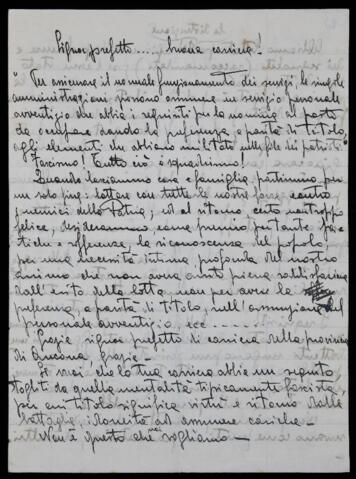 Signor prefetto.... buona carriera!
"Per assicurare il normale funzionamento dei servizi, le singole
amministrazioni possono assumere in servizio personale
avventizio che abbia i requisiti per la nomina al posto
da occupare dando la preferenza a parità di titolo,
agli elementi che abbiano militato nelle file dei patrioti"
Fascismo! Tutto ciò è squadrismo!
Quando lasciammo casa e famiglia, partimmo per
un solo fine: lottare con tutte le nostre forze contro
i nemici della Patria; ed al ritorno, certo non troppo
felice, desideravamo come premio per tante fa-
tiche e sofferenze, la riconoscenza del popolo,
per una necessità intima profonda del nostro
animo che non aveva avuto piena soddisfazione
dall'esito della lotta non per avere la
preferenza, a parità di titolo, nell'assunzione del
personale avventizio, ecc......
Grazie signor prefetto di carriera della provincia
di Ancona, grazie.-
Se vuoi che la tua carriera abbia un seguito
togliti da quella mentalità tipicamente fascista,
per cui titolo significa virtù e ritorno dalla
battaglia, idoneità ad assumere cariche.-
Non è questo che noi vogliamo.-